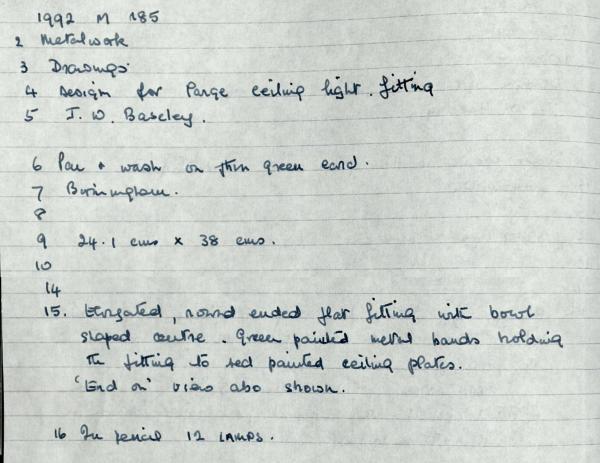 1992 M 185
2 Metalwork
3 Drawings
4 Design for large ceiling light fitting
5 J. W. Baseley.
6 Pen & wash on thin green card.
7 Birmingham.
8
9 24.1 cms x 38 cms.
10
14
15. Elongated, round ended flat fitting with bowl
shaped centre. Green painted metal bands holding
the fitting to red painted ceiling plates.
'End on' view also shown.
16 In pencil 12 LAMPS.